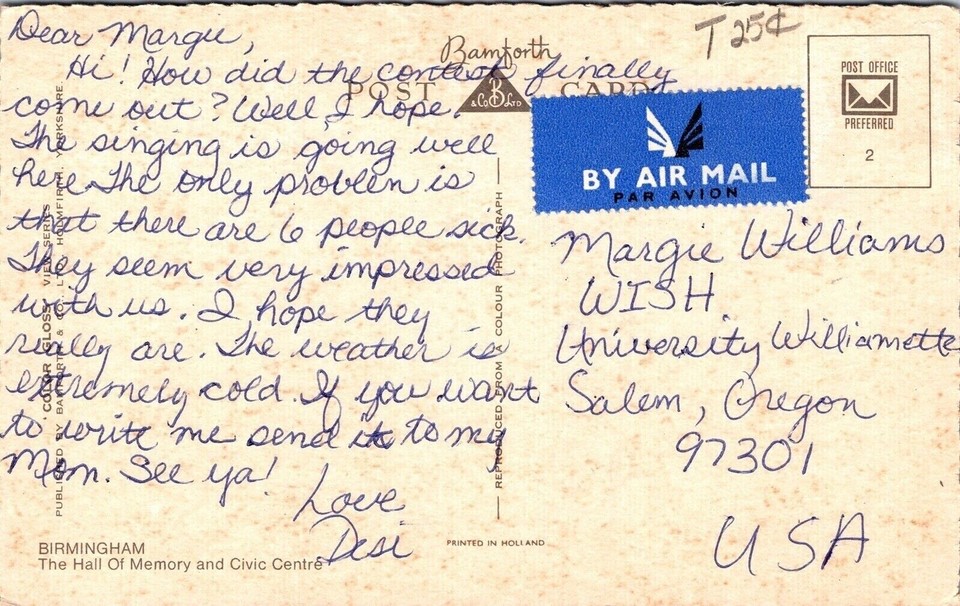 Dear Margie,
Hi! How did the contest finally
come out? Well I hope.
The singing is going well
here. The only problem is
that there are 6 people sick.
They seem very impressed
with us. I hope they
really are. The weather is
extremely cold. If you want
to write me send it to my
Mom. See ya!
Love
Desi
BIRMINGHAM
The Hall Of Memory and Civic Centre
PUBLISHED BY BAMFORTH & CO. LTD. HOLMFIRTH, YORKSHIRE
"COLOR GLOSS" VIEW SERIES
Bamforth
POST CARD
& Co B LTD
REPRODUCED FROM A COLOUR PHOTOGRAPH
PRINTED IN HOLLAND
T 25¢
POST OFFICE
PREFERRED
2
BY AIR MAIL
PAR AVION
Margie Williams
WISH
University Williamette
Salem, Oregon
97301
USA